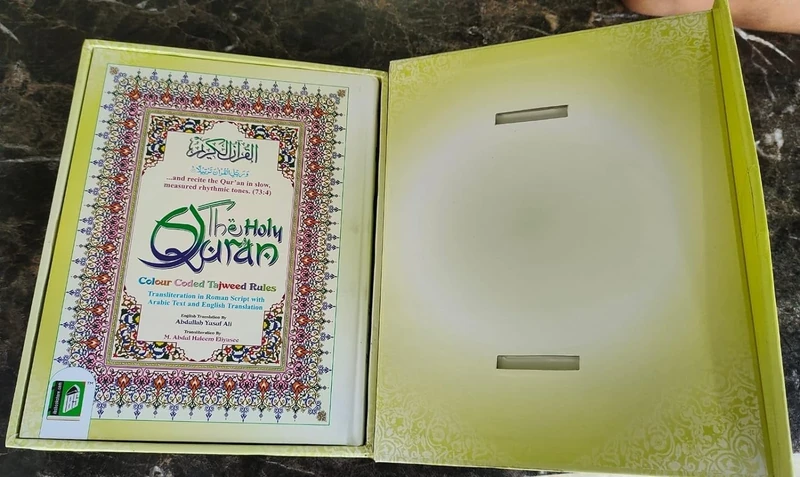 القرآن الكريم
...and recite the Qur'an in slow,
measured rhythmic tones. (73:4)
The Holy
Qur'an
Colour Coded Tajweed Rules
Transliteration in Roman Script with
Arabic Text and English Translation
English Translation By
Abdullah Yusuf Ali
Transliteration By
M. Abdul Haleem Eliyasee